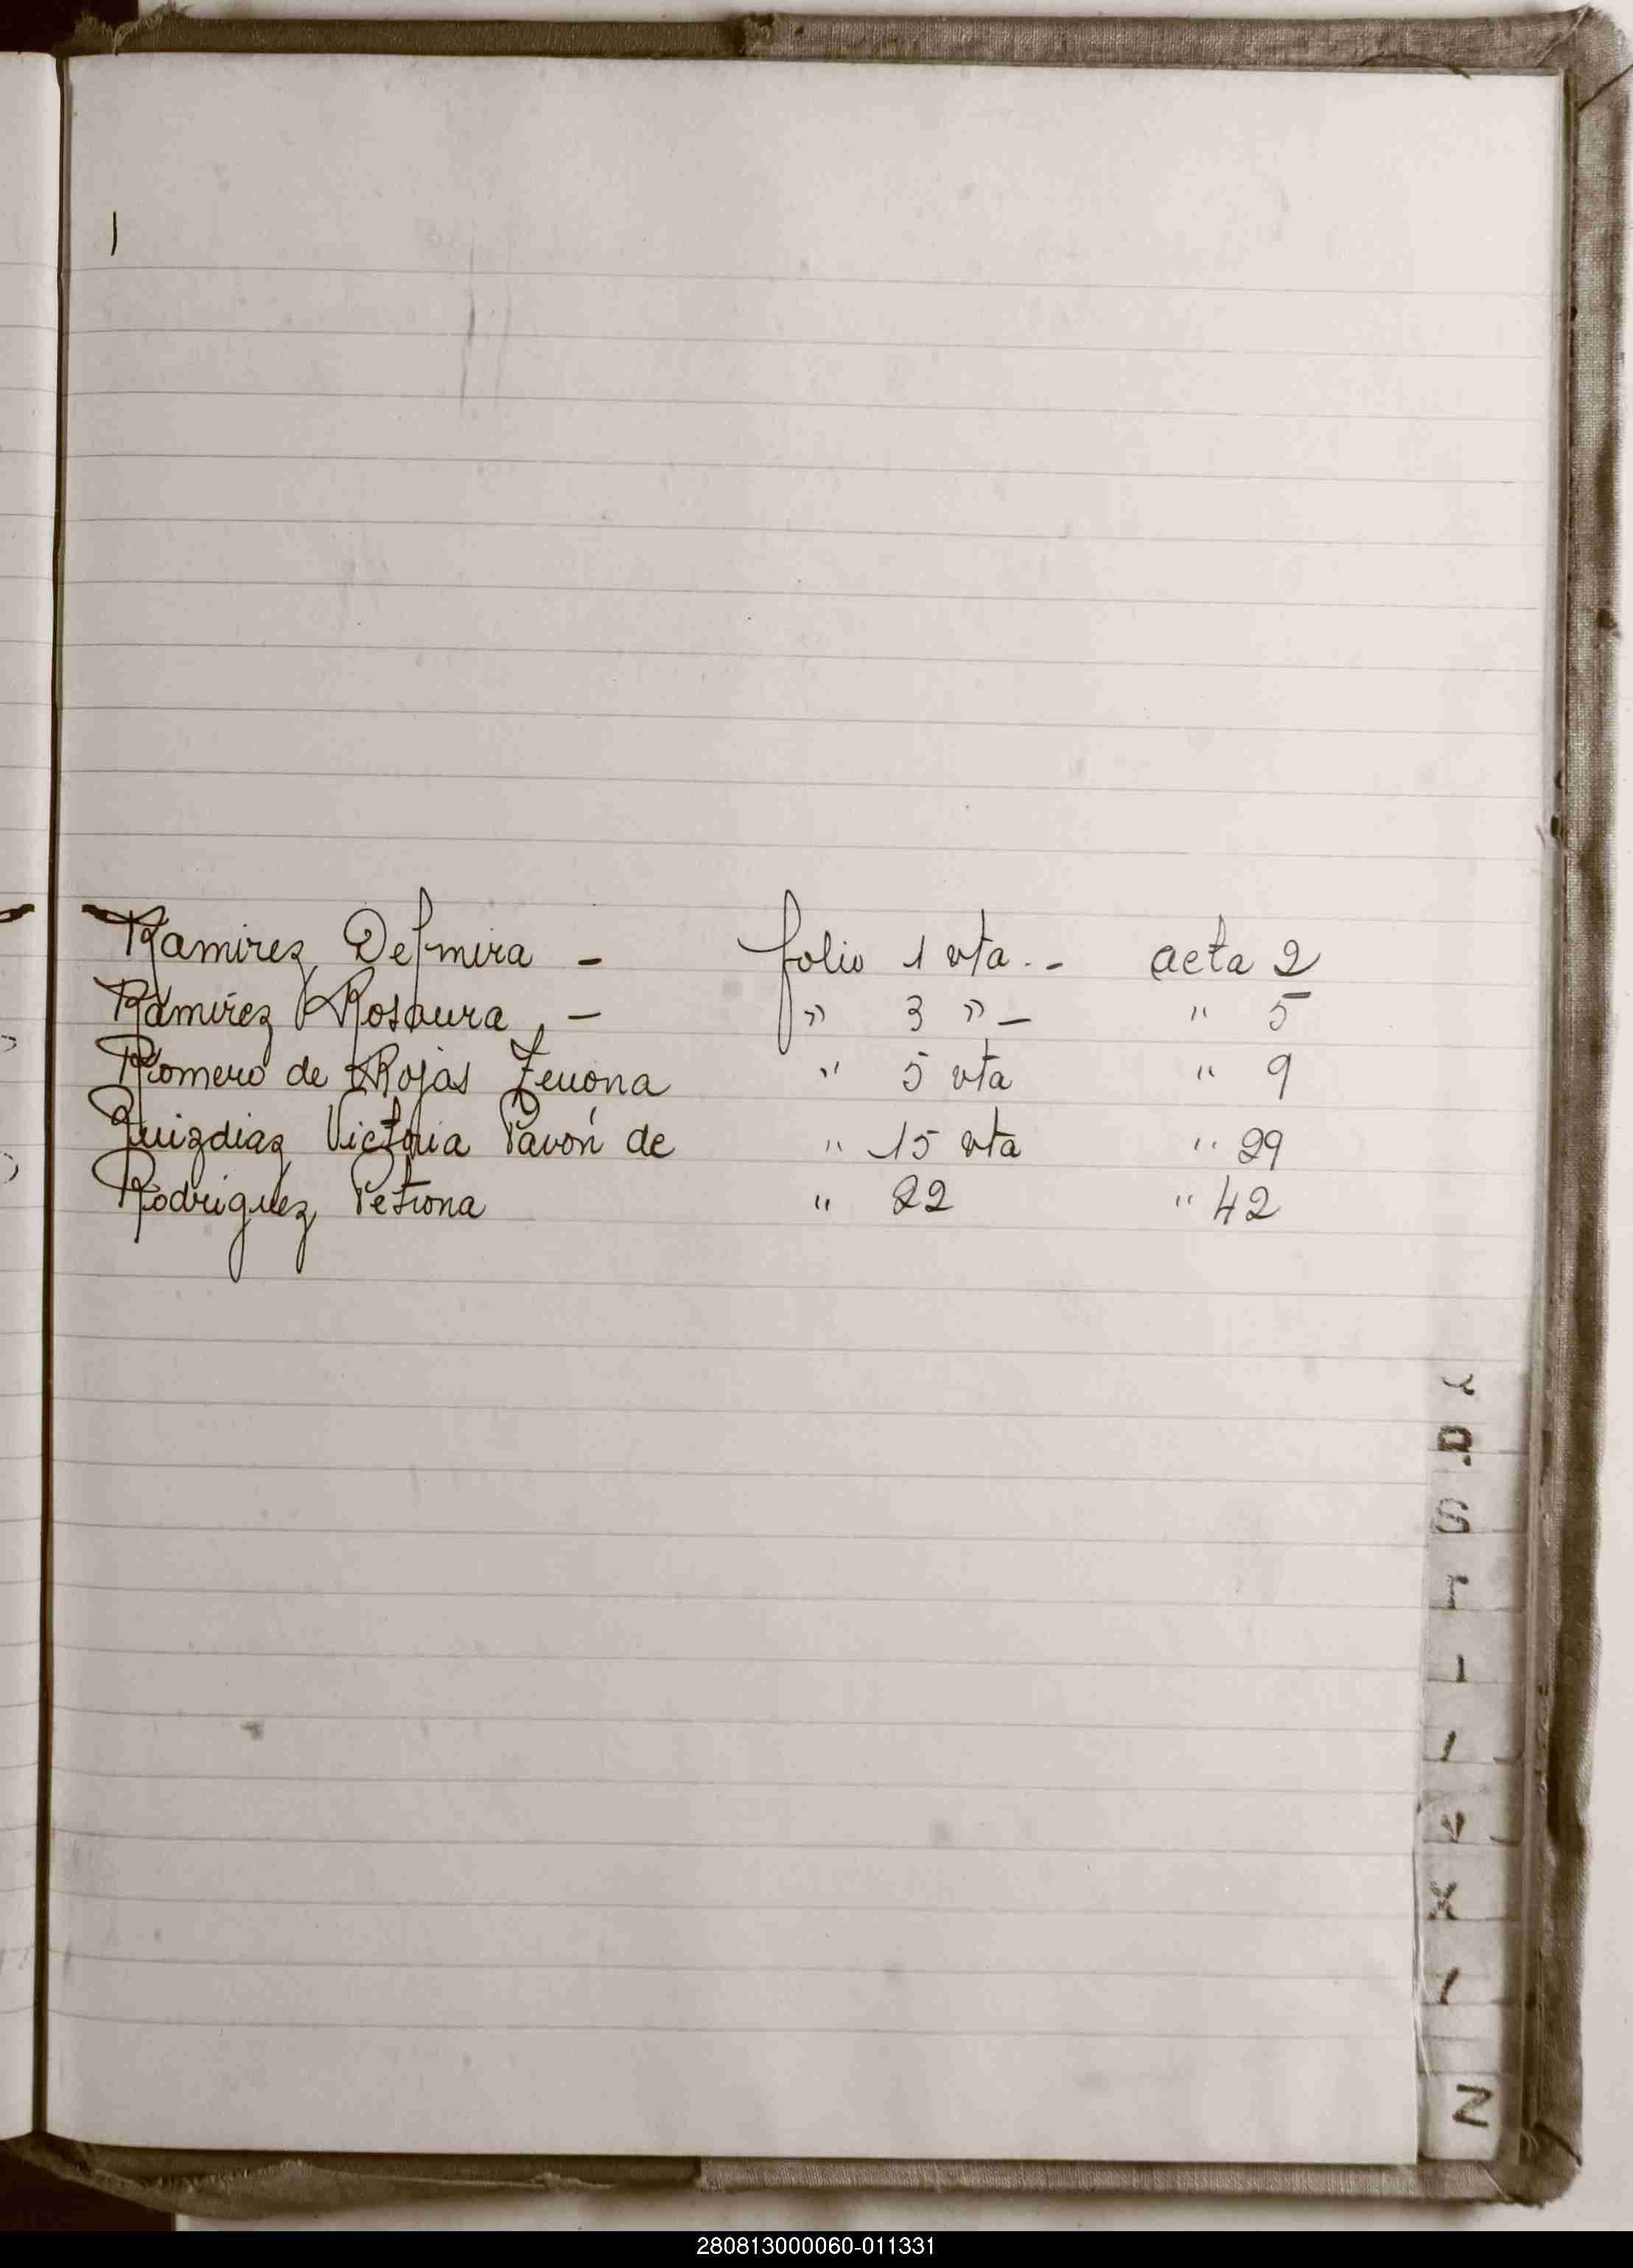 Ramirez Delmira - folio 1 vta. - acta 2
Ramírez Rosaura, - " 3 " - " 5
Romero de Rojas Zenona " 5 vta " 9
Ruizdiaz Victoria Pavón de " 15 vta " 29
Rodriguez Petrona " 22 " 42
R
S
T
V
X
Z
280813000060-011331